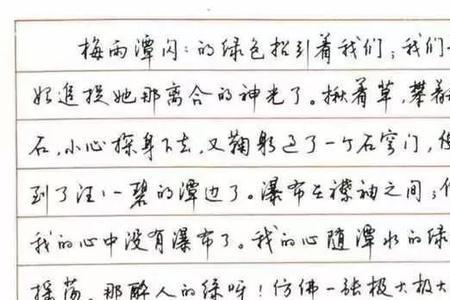 梅雨潭闪:的绿色招引着我们;我们
始追捉她那离合的神光了。揪着草,攀着
石,小心探身下去,又鞠躬过了一个石穹门,便
到了汪:一碧的潭边了。瀑布在襟袖之间;但
我的心中没有瀑布了。我的心随潭水的绿
摇荡。那醉人的绿呀!仿佛一张极大极大